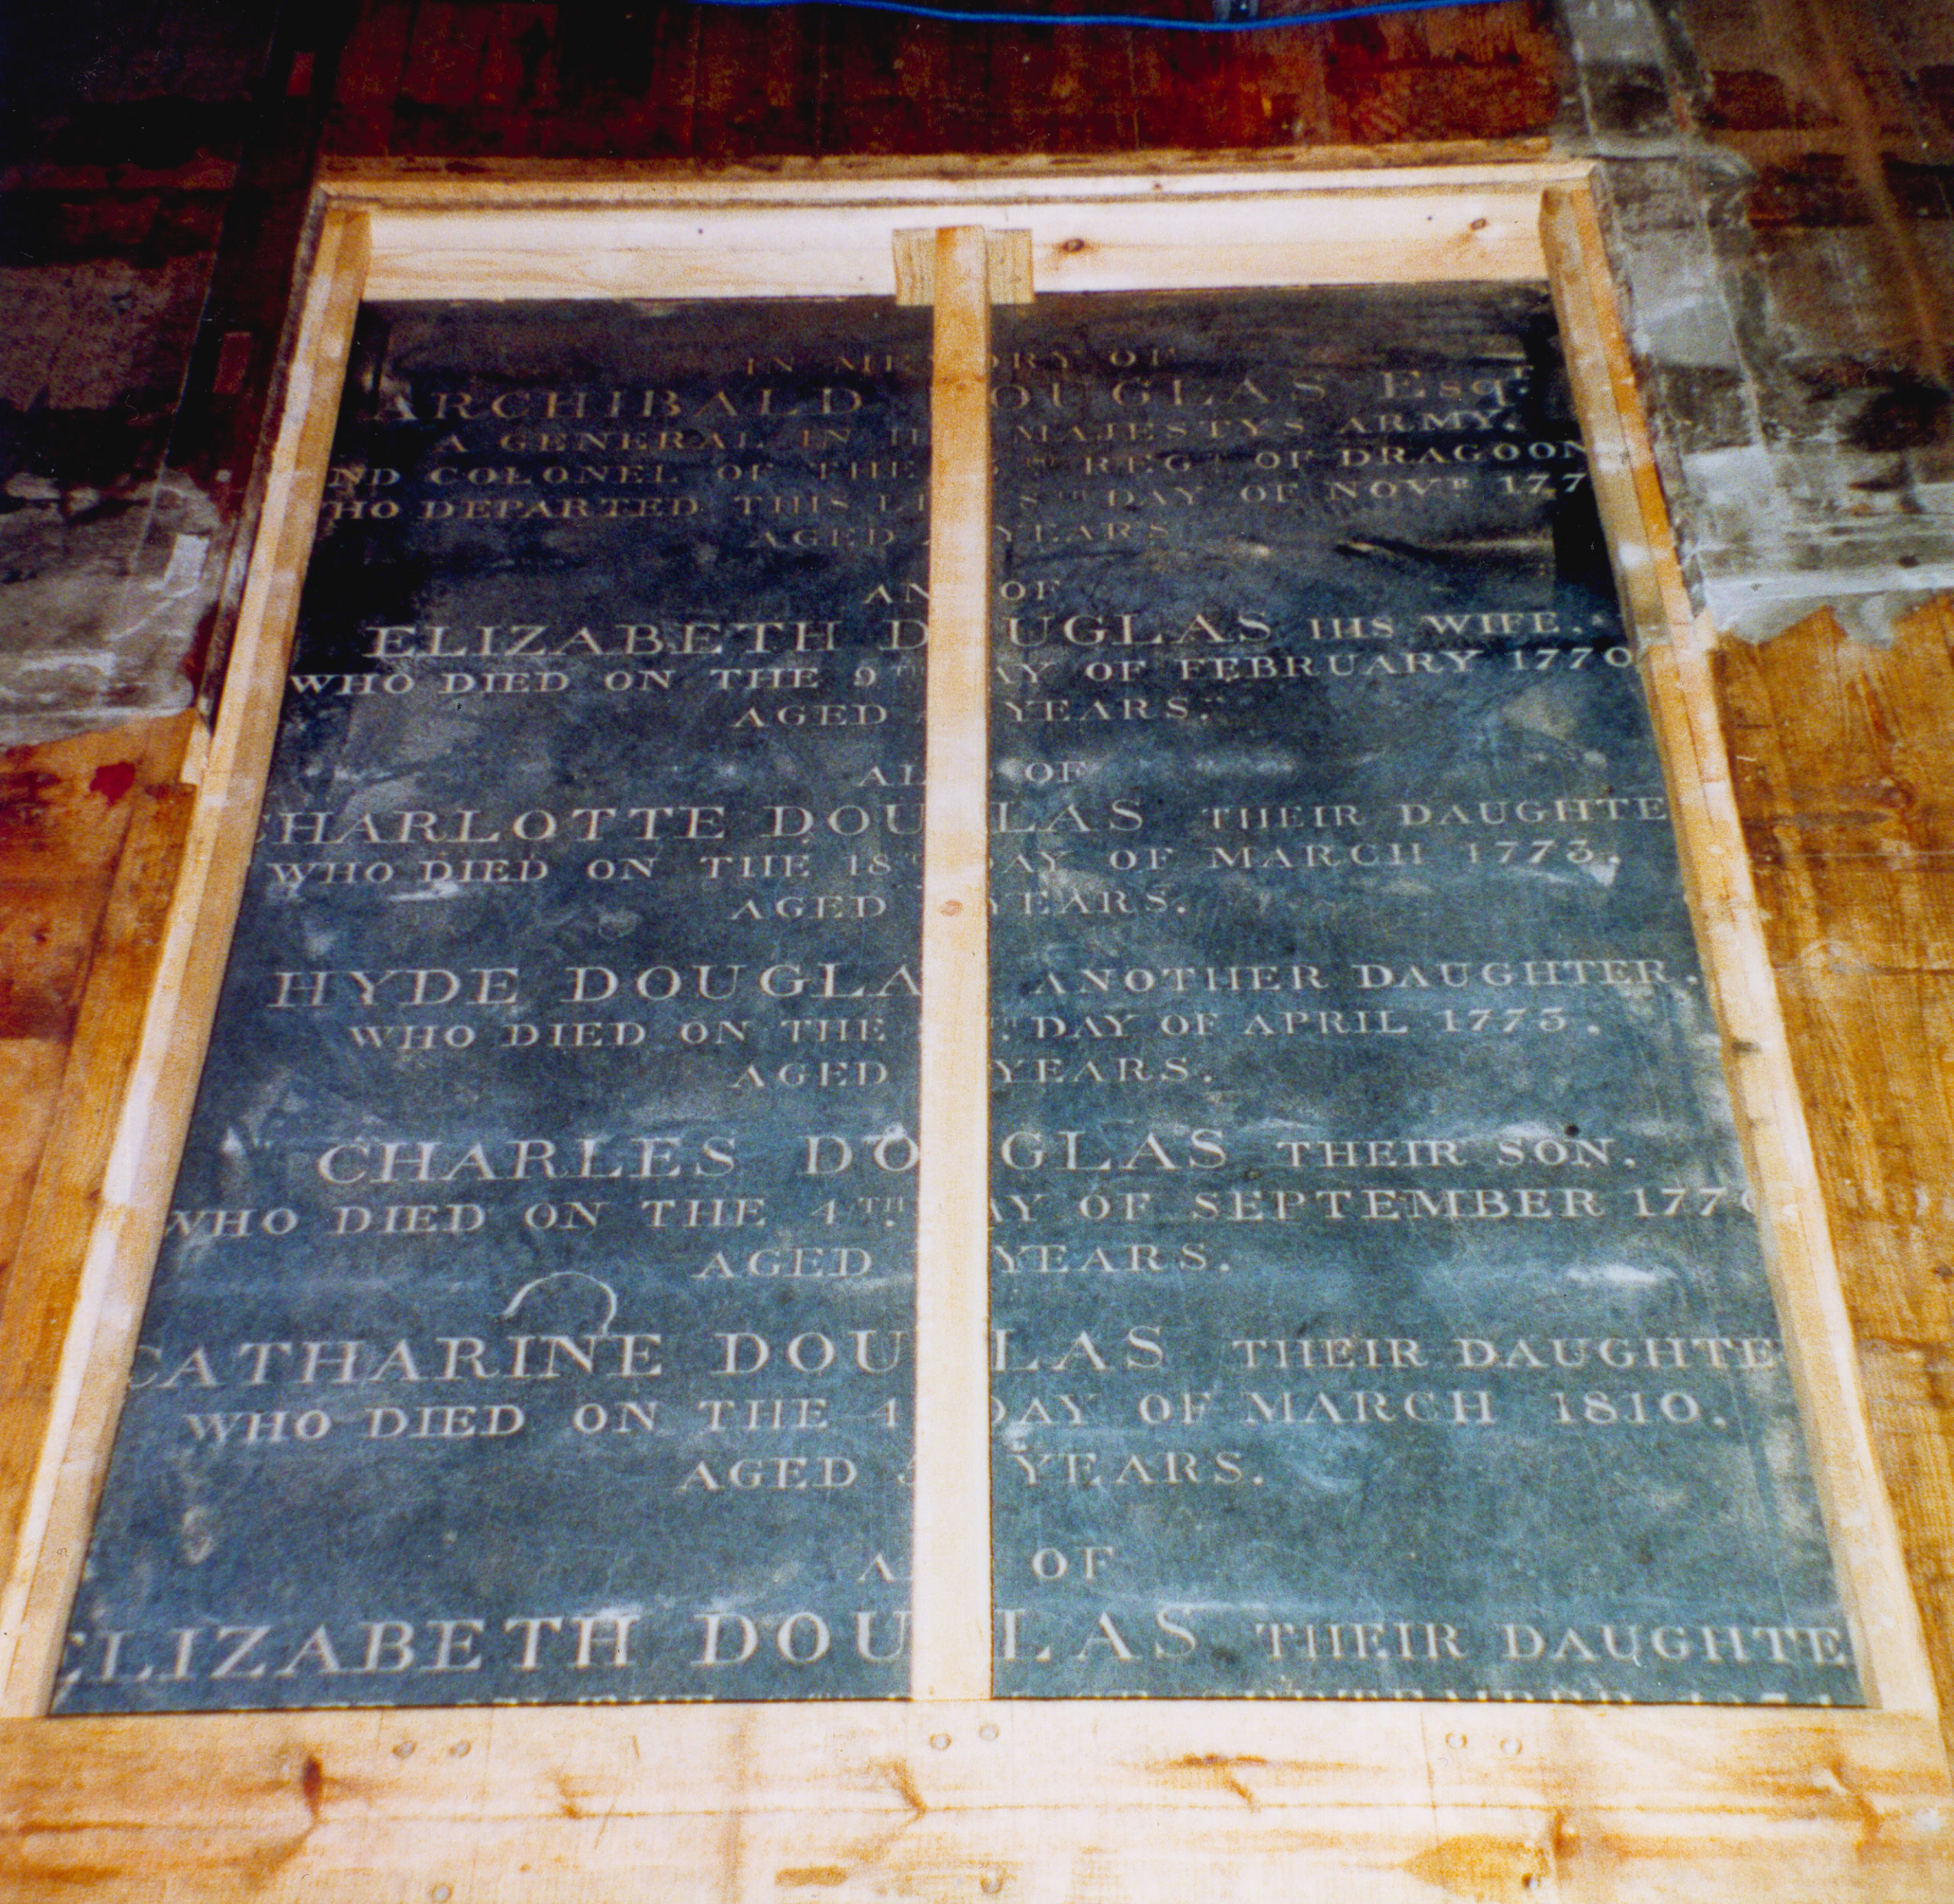 IN MEMORY OF
ARCHIBALD DOUGLAS Esqr.
A GENERAL IN HIS MAJESTYS ARMY.
ND COLONEL OF THE REGT OF DRAGOON
HO DEPARTED THIS DAY OF NOVR 177
AGED YEARS
AND OF
ELIZABETH DOUGLAS HIS WIFE.
WHO DIED ON THE 9TH DAY OF FEBRUARY 1770
AGED YEARS.
ALSO OF
CHARLOTTE DOUGLAS THEIR DAUGHTE
WHO DIED ON THE 18TH DAY OF MARCH 1773.
AGED YEARS.
HYDE DOUGLAS ANOTHER DAUGHTER.
WHO DIED ON THE DAY OF APRIL 1773.
AGED YEARS.
CHARLES DOUGLAS THEIR SON.
WHO DIED ON THE 4TH DAY OF SEPTEMBER 177
AGED YEARS.
CATHARINE DOUGLAS THEIR DAUGHTE
WHO DIED ON THE 4 DAY OF MARCH 1810.
AGED YEARS.
OF
ELIZABETH DOUGLAS THEIR DAUGHTE